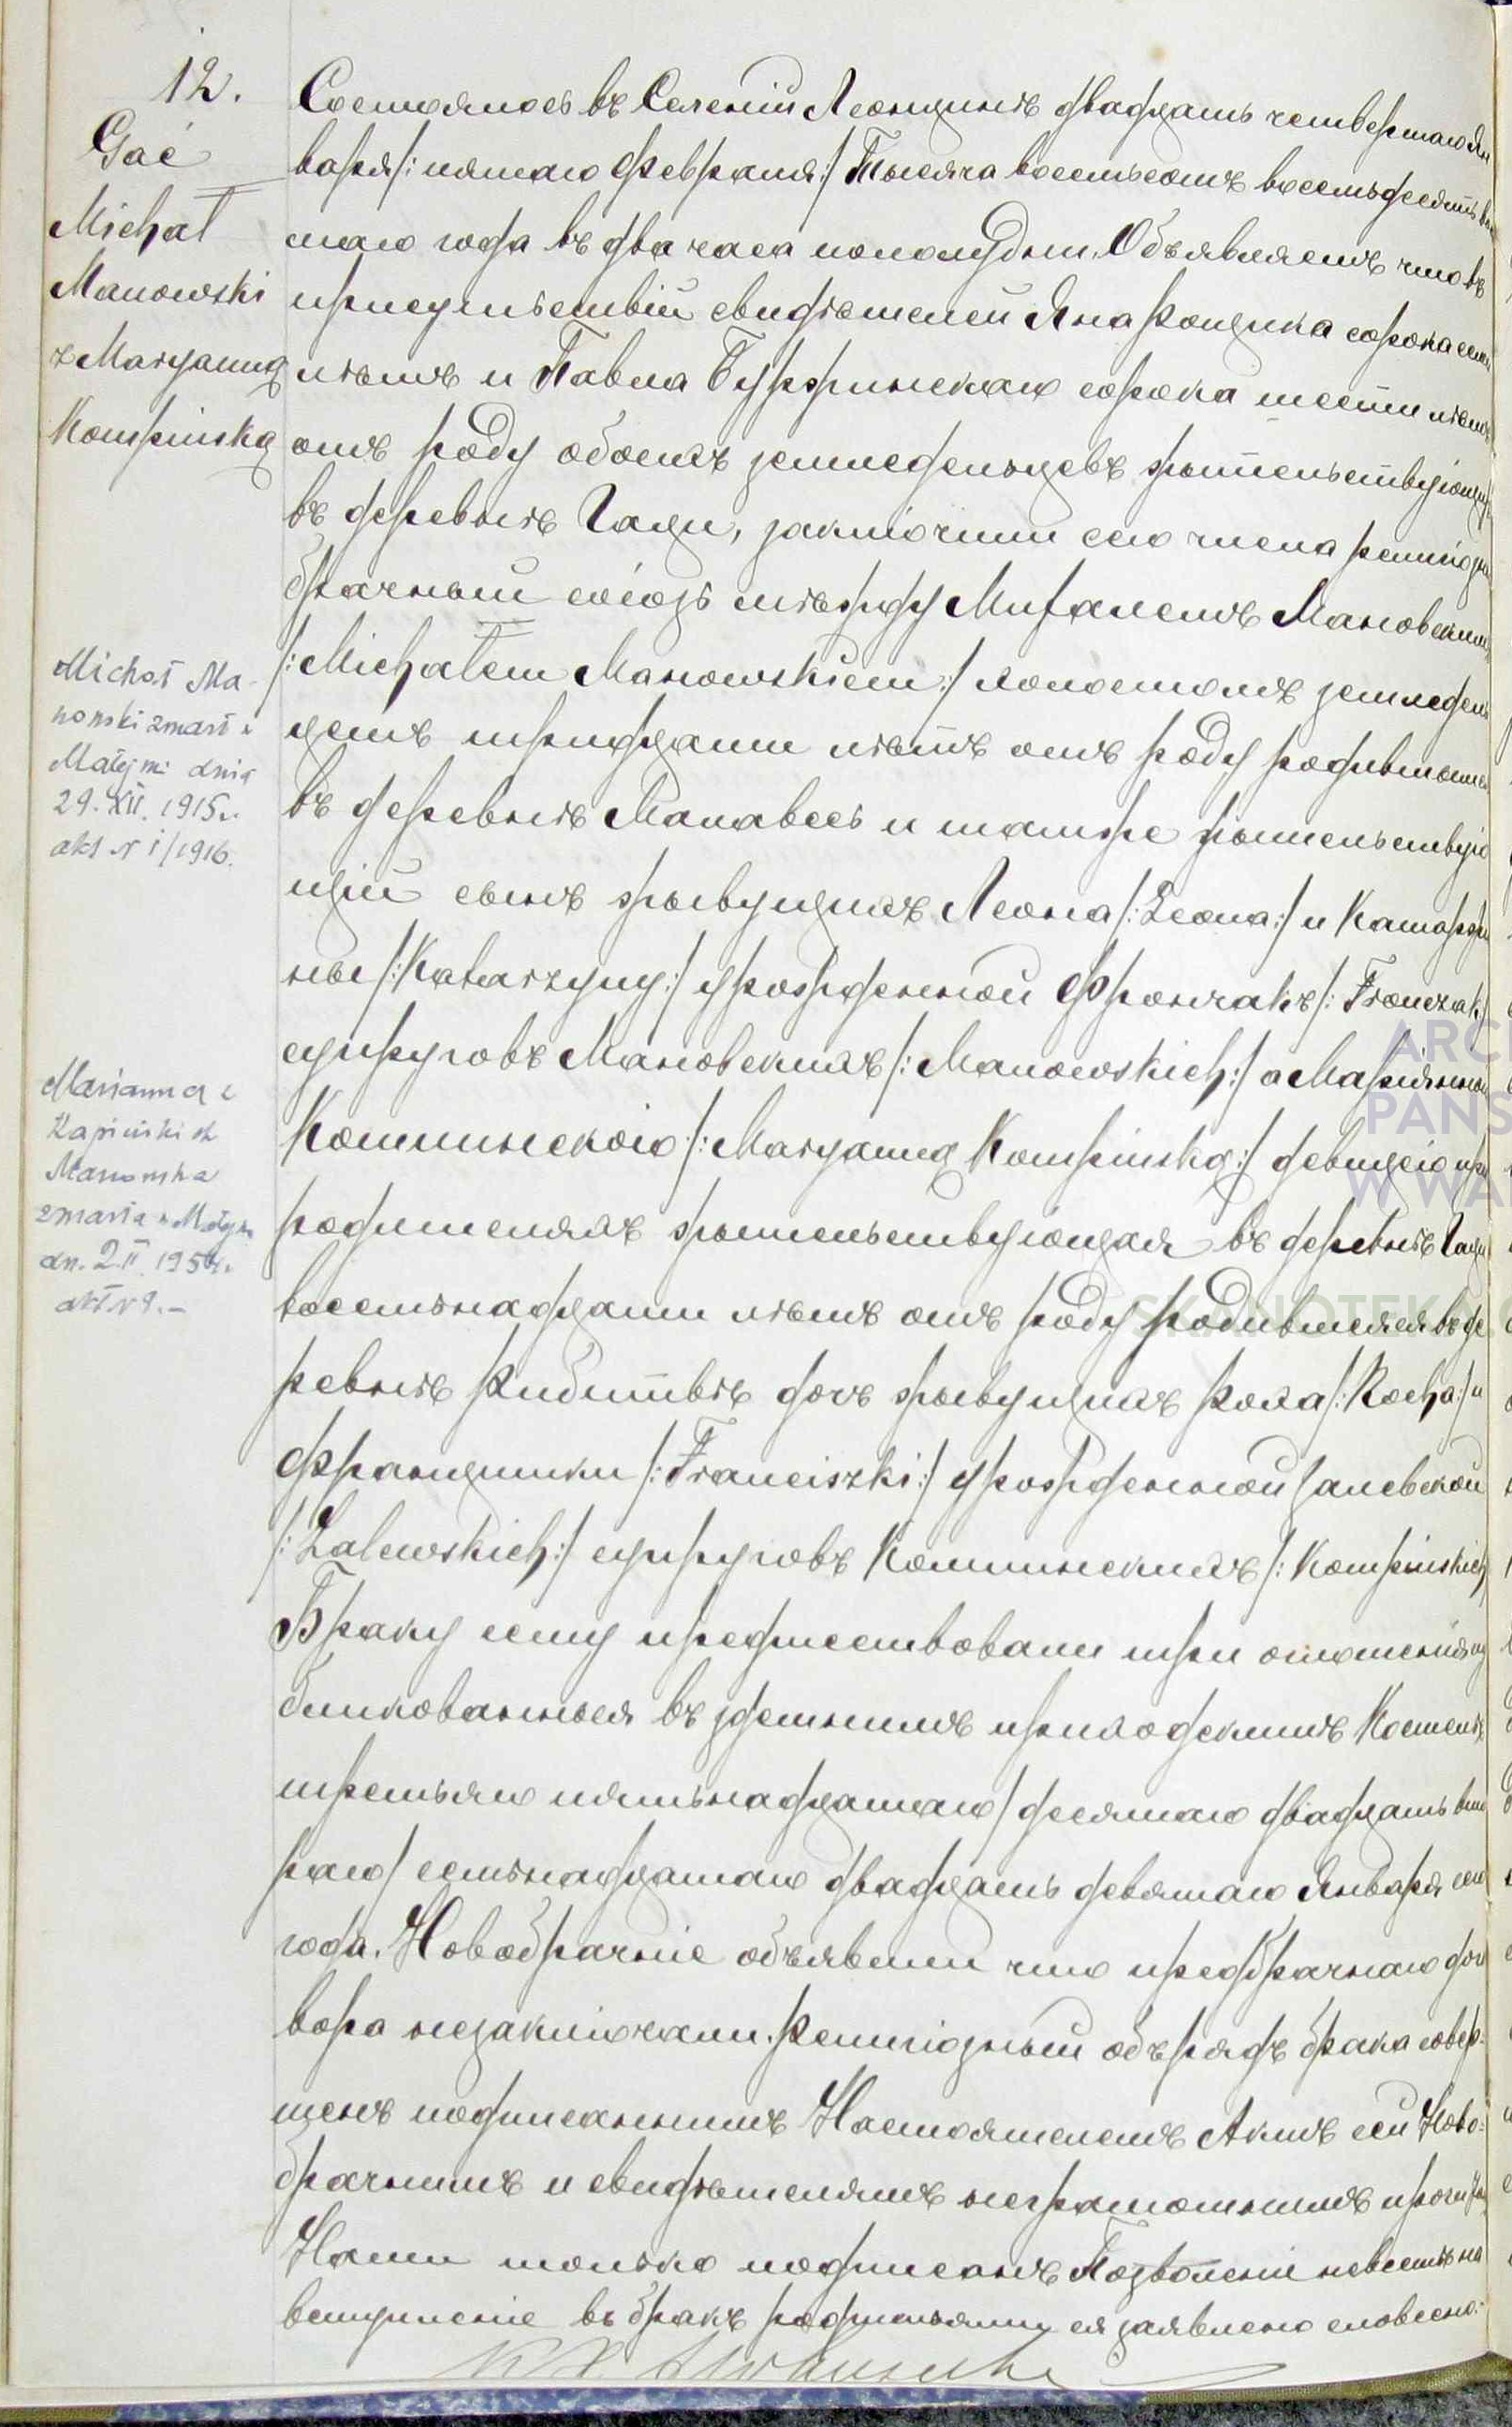 12.
Gać
Michał
Manowski
z Maryanną
Kompinską
Michał Ma-
nowski zmarł w
Małejwsi dnia
29. XII. 1915 r.
akt № 1/1916.
Marianna z
Kapińskich
Manowska
zmarła w
dn. 2.II. 195
akt № 9.-
Состоялось въ Селеніи Леонцинѣ двадцать четвертаго Ян
варя /: пятаго февраля :/ Тысяча восемьсотъ восемьдесятъ
таго года въ два часа пополудни. Объявляемъ что въ
присутствіи свидѣтелей Яна Концика сорока семи
лѣтъ и Павла Буржинскаго сорока шести лѣтъ
отъ роду обоихъ земледельцевъ жительствующихъ
въ деревнѣ Гаци, заключили сего числа религіозны
брачный союзъ мѣжду Михалемъ Мановскимъ
/: Michałem Manowskiem :/ холостымъ земледель
цемъ тридцати лѣтъ отъ роду родившимся
въ деревнѣ Малавесь и тамже жительствую
щій сынъ живущихъ Леона /: Leona :/ и Катаржи
ны /: Katarzyny :/ урожденной Фрончакъ /: Fronczak
супруговъ Мановскихъ /: Manowskich :/ а Маріянною
Компинскою /: Maryanną Kompinską :/ девицею при
родителяхъ жительствующая въ деревнѣ Гаци
восемьнадцати лѣтъ отъ роду родившеяся въ де
ревнѣ Рибитвѣ дочъ живущихъ Роха /: Rocha :/ и
Францишки /: Franciszki :/ урожденной Залевской
/: Zalewskich :/ супруговъ Компинскихъ /: Kompinskich
Браку сему предшествовали три оглашенія пу
бликованныя въ здешнимъ приходскимъ Костелѣ
третьяго пятьнадцатаго / десятаго двадцать вто
раго / семьнадцатаго двадцать девятаго Января сего
года. Новобрачніе объявили что предбрачнаго дого
вора незаключали. Религіозный обърядъ брака совер-
шенъ подписаннымъ Настоятелемъ Актъ сей Ново-
брачнымъ и свидѣтелямъ неграмотнымъ прочитан
Нами только подписанъ Позволеніе невестѣ на
вступленіе въ бракъ родительями ея заявлено словесно.-
ARCH
PAŃS
W WA
SKANOTEKA